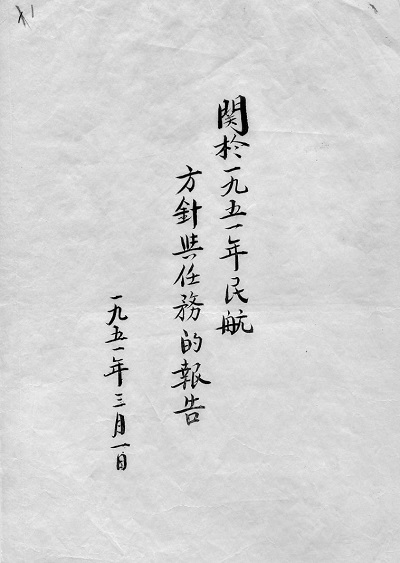 関於一九五一年民航
方針與任務的報告
一九五一年三月一日